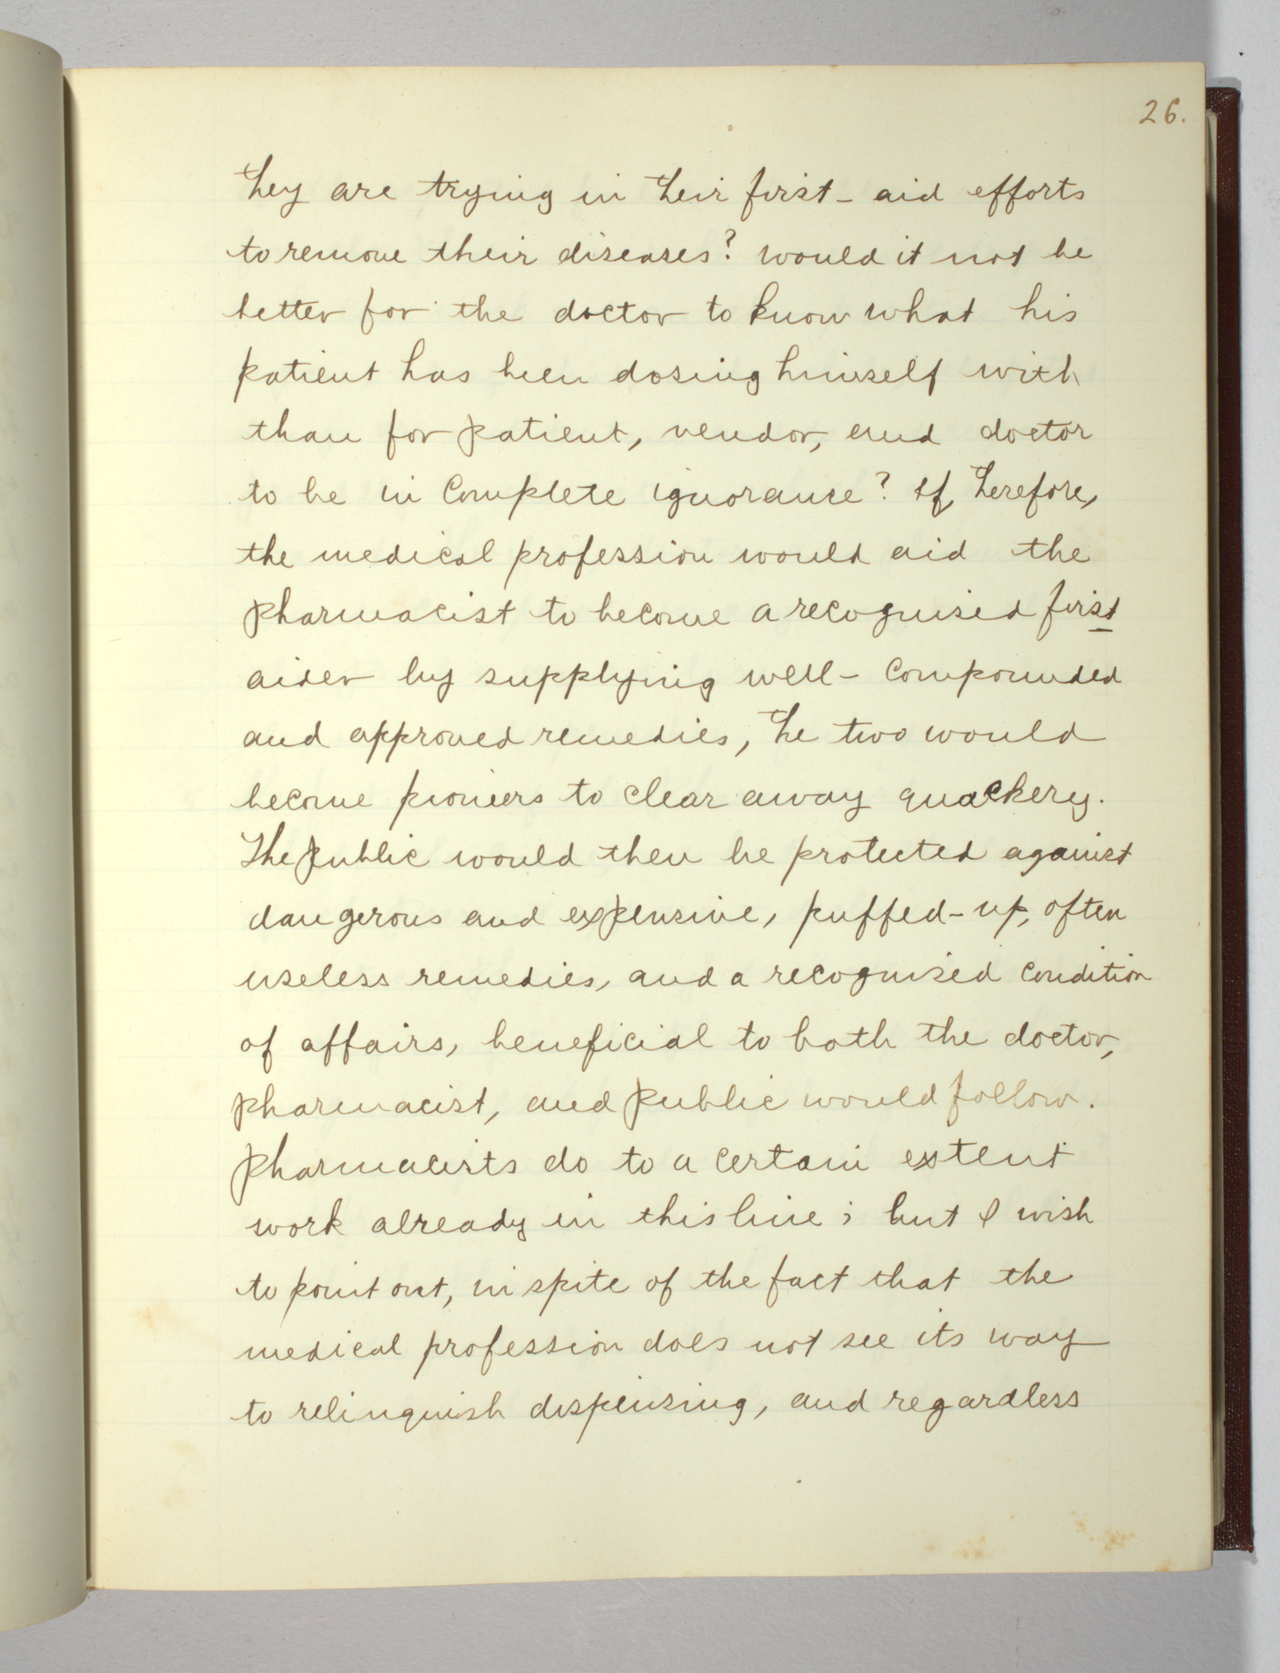 26.
they are trying in their first-aid efforts
to remove their diseases? Would it not be
better for the doctor to know what his
patient has been dosing himself with
than for patient, vendor, and doctor
to be in complete ignorance? If, therefore,
the medical profession would aid the
pharmacist to become a recognised first
aider by supplying well-compounded
and approved remedies, the two would
become pioneers to clear away quackery.
The public would then be protected against
dangerous and expensive, puffed-up, often
useless remedies, and a recognised condition
of affairs, beneficial to both the doctor,
pharmacist, and public would follow.
Pharmacists do to a certain extent
work already in this line; but I wish
to point out, in spite of the fact that the
medical profession does not see its way
to relinquish dispensing, and regardless